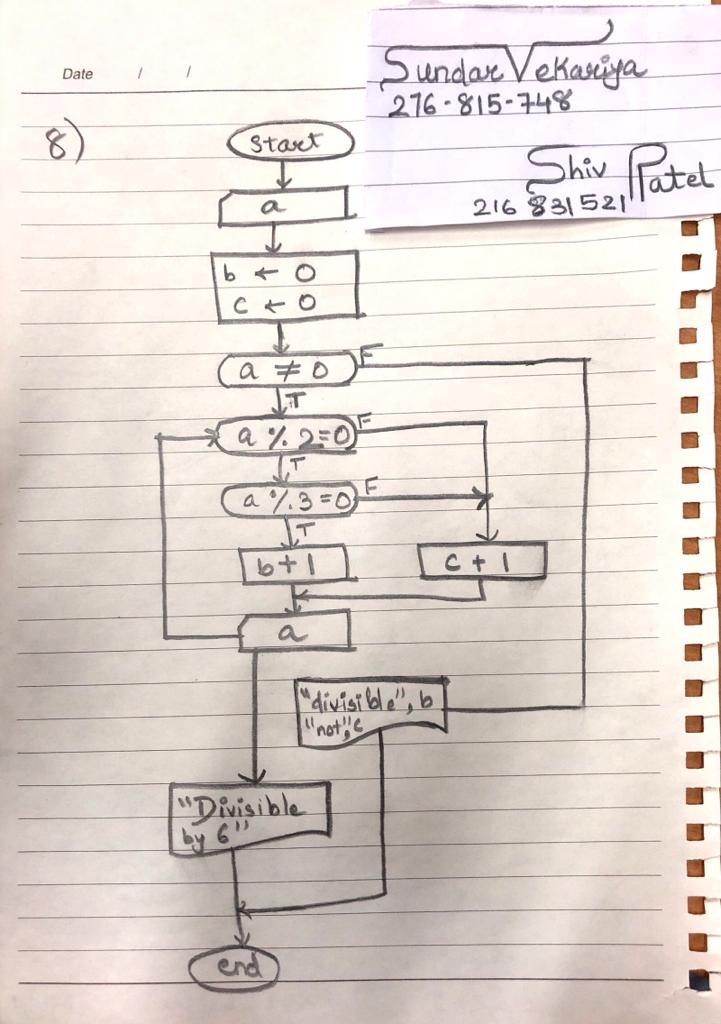 Date / /
Sundar Vekariya
276-815-748
Shiv Patel
216 831521
8)
Start
a
b ← 0
c ← 0
a ≠ 0
F
T
a % 2=0
F
T
a % 3=0
F
T
b+1
c + 1
a
"divisible", b
"not",c
"Divisible
by 6"
end